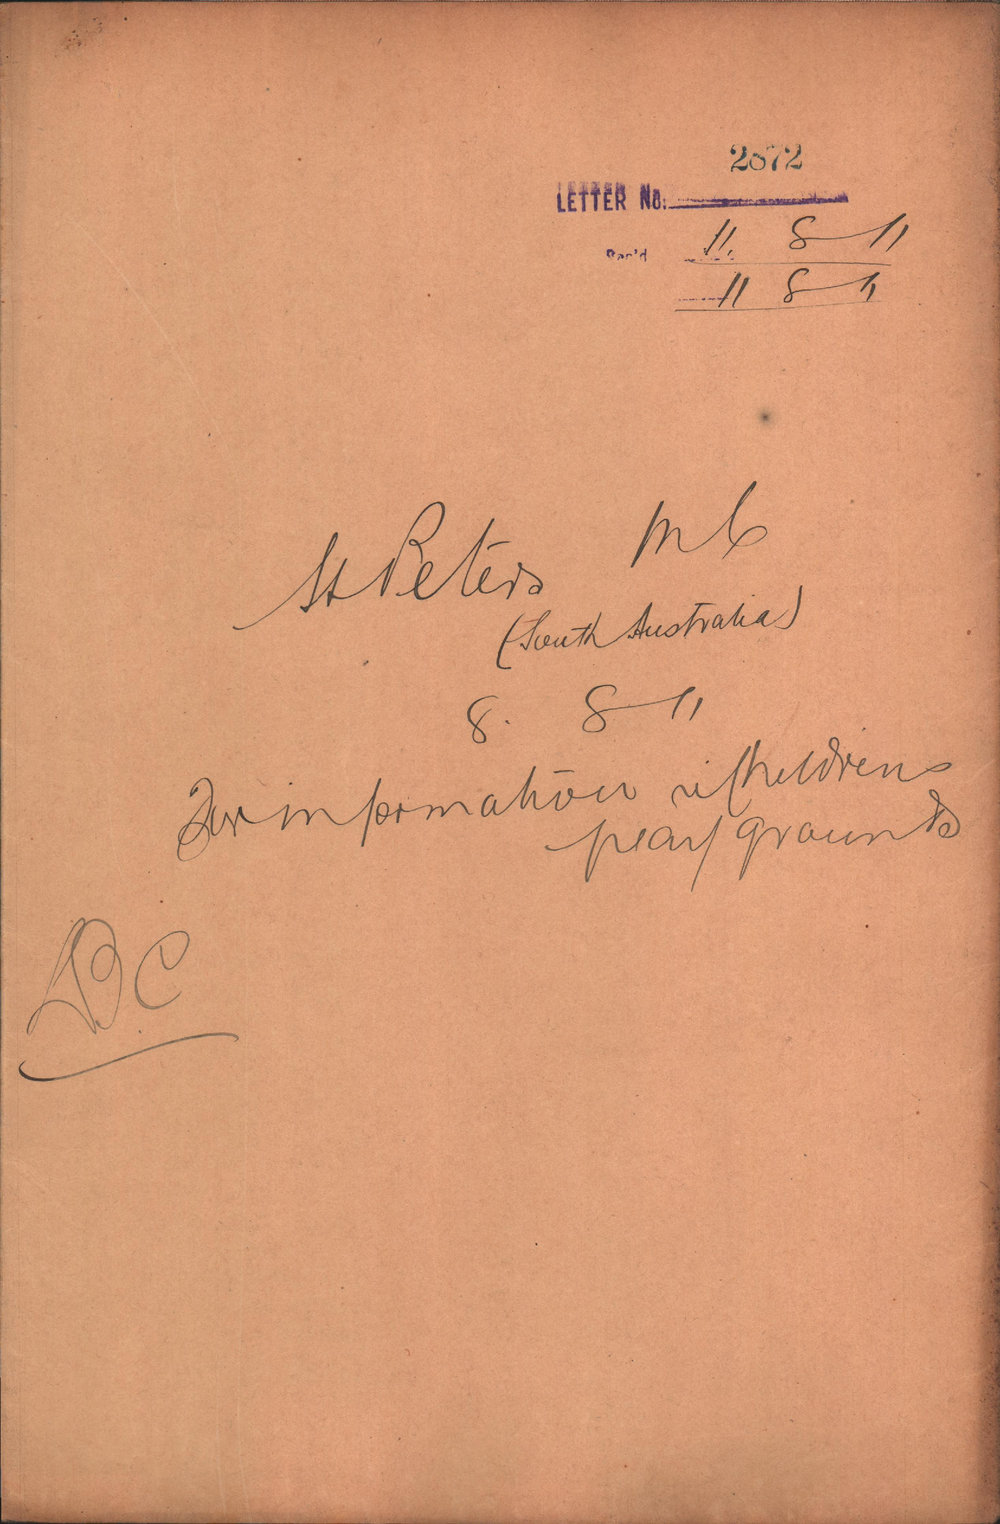 2872
LETTER No.
Rec'd 11. 8-11
11 8-11
St Peters M C
(South Australia)
8. 8-11
For information re Childrens
play grounds